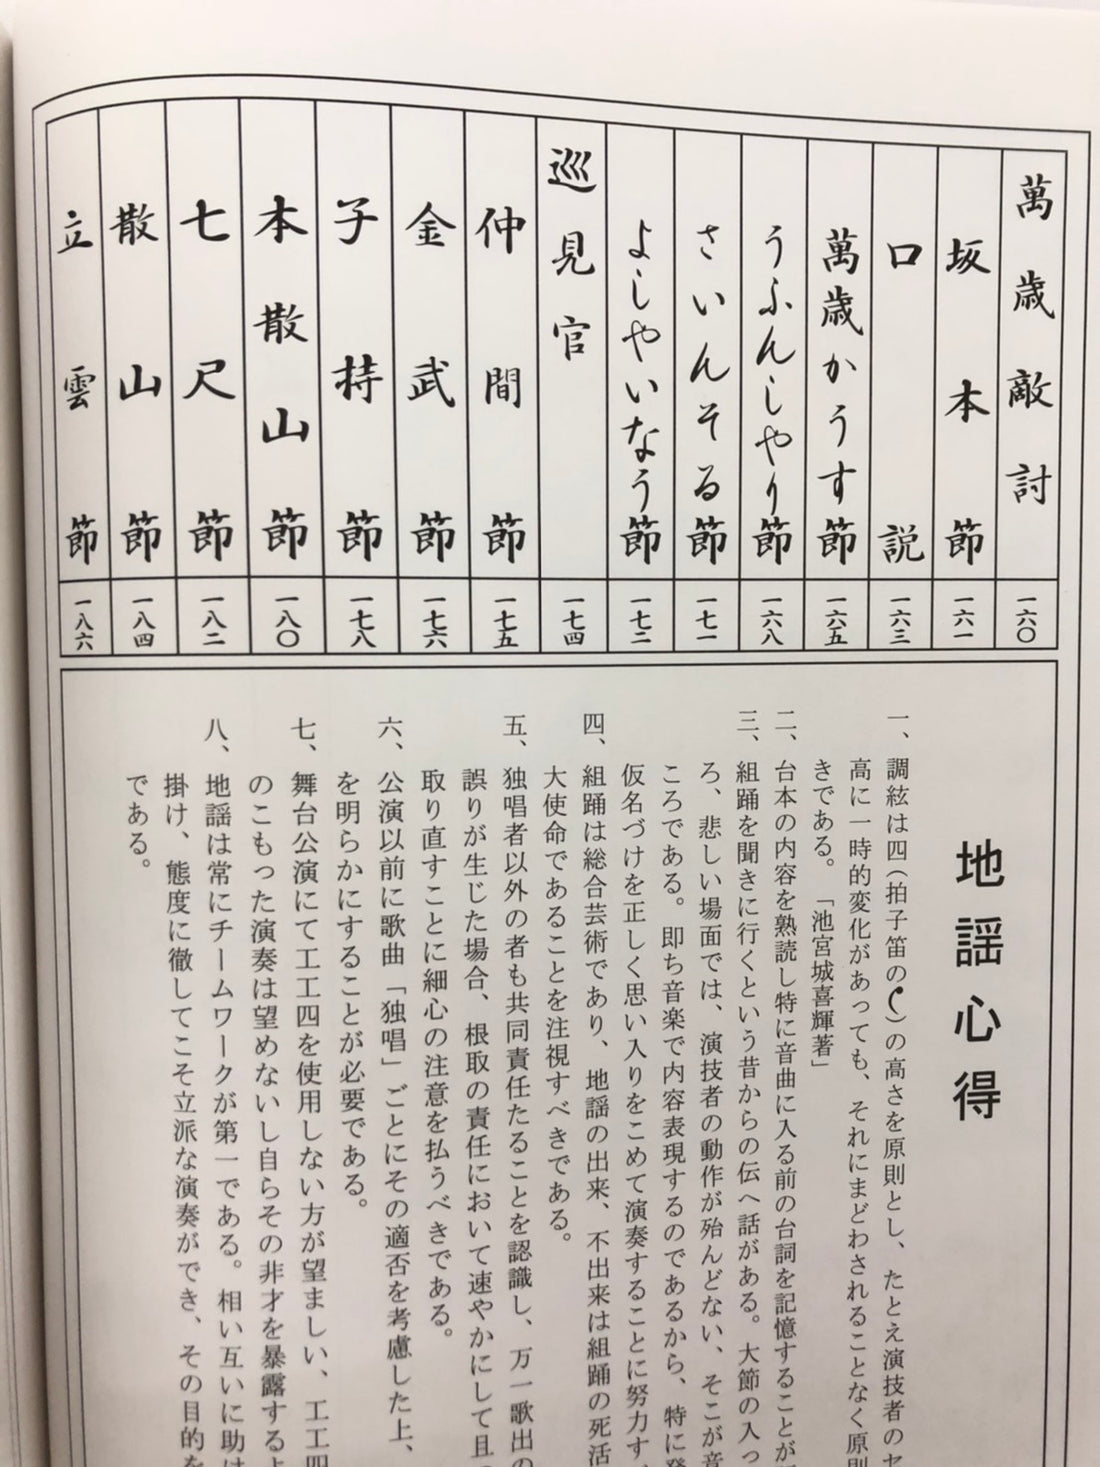 萬歳敵討 一六〇
坂本節 一六一
口説 一六三
萬歳かうす節 一六五
うふんしやり節 一六八
さいんそる節 一七一
よしやいなう節 一七二
巡見官 一七四
仲間節 一七五
金武節 一七六
子持節 一七八
本散山節 一八〇
七尺節 一八二
散山節 一八四
立雲節 一八六
地謡心得
一、調絃は四(拍子笛の)の高さを原則とし、たとえ演技者のセ
高に一時的変化があっても、それにまどわされることなく原則
きである。「池宮城喜輝著」
二、台本の内容を熟読し特に音曲に入る前の台詞を記憶することが
三、組踊を聞きに行くという昔からの伝へ話がある。大節の入っ
ろ、悲しい場面では、演技者の動作が殆んどない、そこが音
ころである。即ち音楽で内容表現するのであるから、特に発
仮名づけを正しく思い入りをこめて演奏することに努力す
四、組踊は総合芸術であり、地謡の出来、不出来は組踊の死活
大使命であることを注視すべきである。
五、独唱者以外の者も共同責任たることを認識し、万一歌出の
誤りが生じた場合、根取の責任において速やかにして且つ
取り直すことに細心の注意を払うべきである。
六、公演以前に歌曲「独唱」ごとにその適否を考慮した上、
を明らかにすることが必要である。
七、舞台公演にて工工四を使用しない方が望ましい、工工四
のこもった演奏は望めないし自らその非才を暴露するよ
八、地謡は常にチームワークが第一である。相い互いに助け
掛け、態度に徹してこそ立派な演奏ができ、その目的を
である。